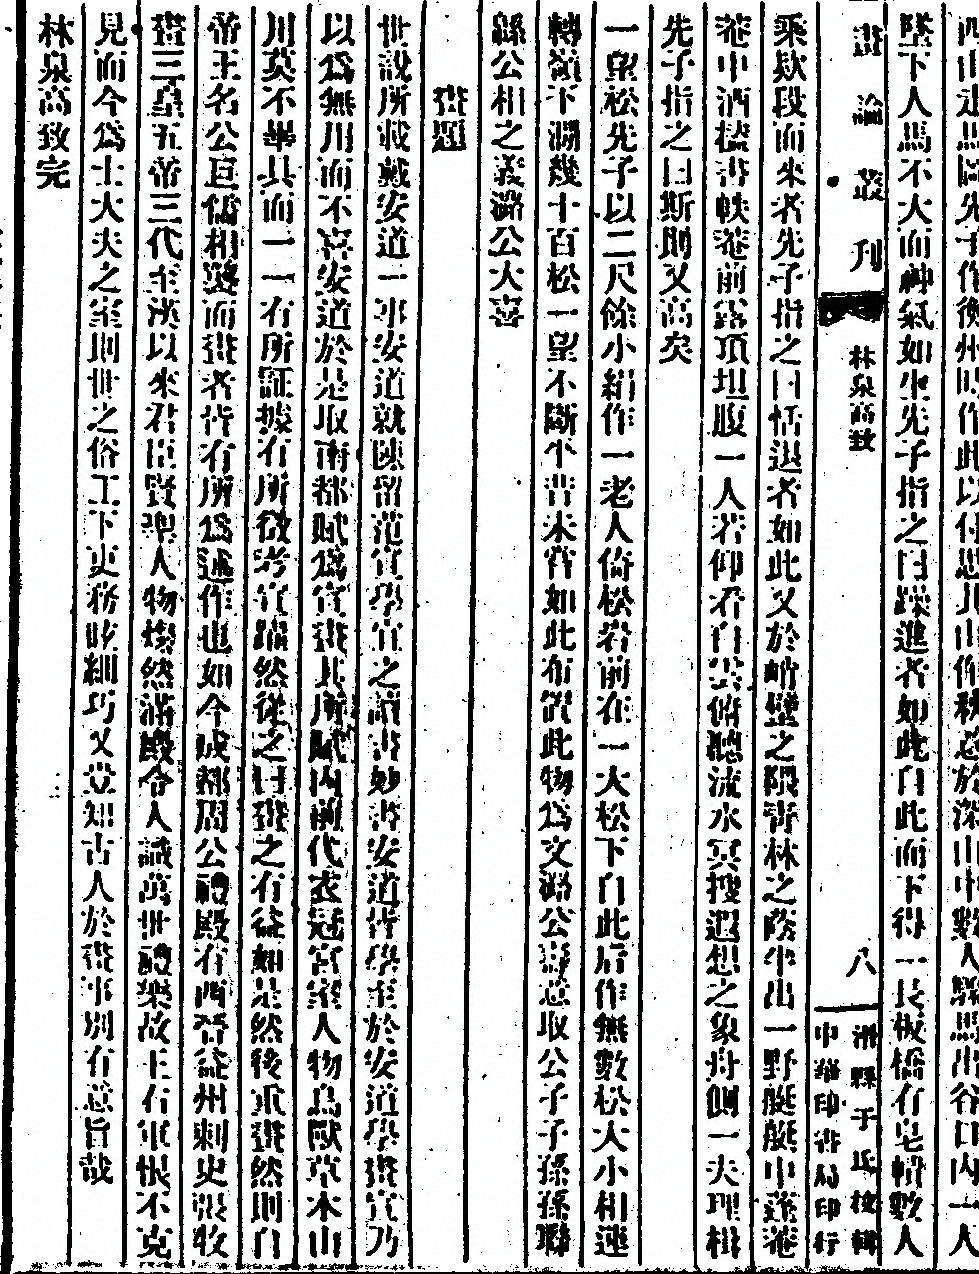 西山走馬圖先子作衡州時作此以付思其山作秋意於深山中數人驟馬出谷口內一人
墜下人馬不大而神氣如生先子指之曰躁進者如此自此而下得一長板橋有皂幘數人
畫論叢刊 林泉高致 八 滑縣于氏校輯 中華印書局印行
乘欵段而來者先子指之曰恬退者如此又於峭壁之隈靑林之蔭半出一野艇艇中蓬菴
菴中酒榼書帙菴前露頂坦腹一人若仰看白雲俯聽流水冥搜遐想之象舟側一夫理楫
先子指之曰斯則又高矣
一望松先子以二尺餘小絹作一老人倚松岩前在一大松下自此后作無數松大小相連
轉嶺下澗幾十百松一望不斷平昔未嘗如此布置此物爲文潞公壽意取公子子孫孫聯
緜公相之義潞公大喜
畫題
世說所載戴安道一事安道就陳留范宣學宣之讀書妙書安道皆學至於安道學畫宣乃
以爲無用而不喜安道於是取南都賦爲宣畫其所賦內前代衣冠宮室人物鳥獸草木山
川莫不畢具而一一有所証據有所徵考宣躍然從之曰畫之有益如是然後重畫然則自
帝王名公巨儒相襲而畫者皆有所爲述作也如今成都周公禮殿有西晉益州刺史張牧
畫三皇五帝三代至漢以來君臣賢聖人物燦然滿殿令人識萬世禮樂故王右軍恨不克
見而今爲士大夫之室則世之俗工下吏務眩細巧又豈知古人於畫事別有意旨哉
林泉高致完